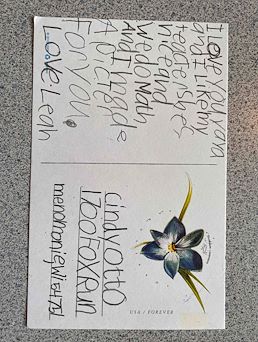 I Love you yaya
and I Like my
teacher she's
nice and
we do Math
And I made
A
For you
Love Leah
cindy otto
1700 Fox Run
menomonie wi 54751
USA / FOREVER